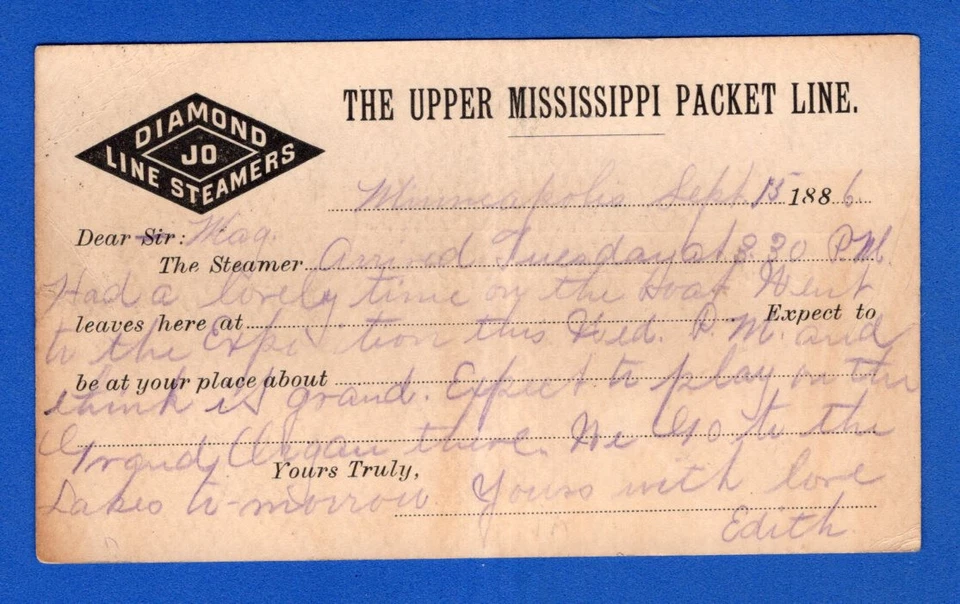 THE UPPER MISSISSIPPI PACKET LINE.
DIAMOND
JO
LINE STEAMERS
Minneapolis Sept. 15 1886
Dear Sir: Mag.
The Steamer Arrived Tuesday at 8.30 P.M.
Had a lovely time on the boat. Went
leaves here at Expect to
to the Expisition this Wed. P.M. and
be at your place about
think it grand. Expect to play on the
Grand Organ there. We go to the
Yours Truly,
Lakes to-morrow. Yours with love
Edith